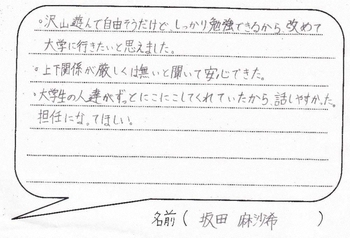 ・沢山遊んで自由そうだけど、しっかり勉強できるから、改めて
大学に行きたいと思えました。
・上下関係が厳しくは無いと聞いて安心できた。
・大学生の人達がずっとにこにこしてくれていたから、話しやすかった。
担任になってほしい。
名前( 坂田 麻沙希 )